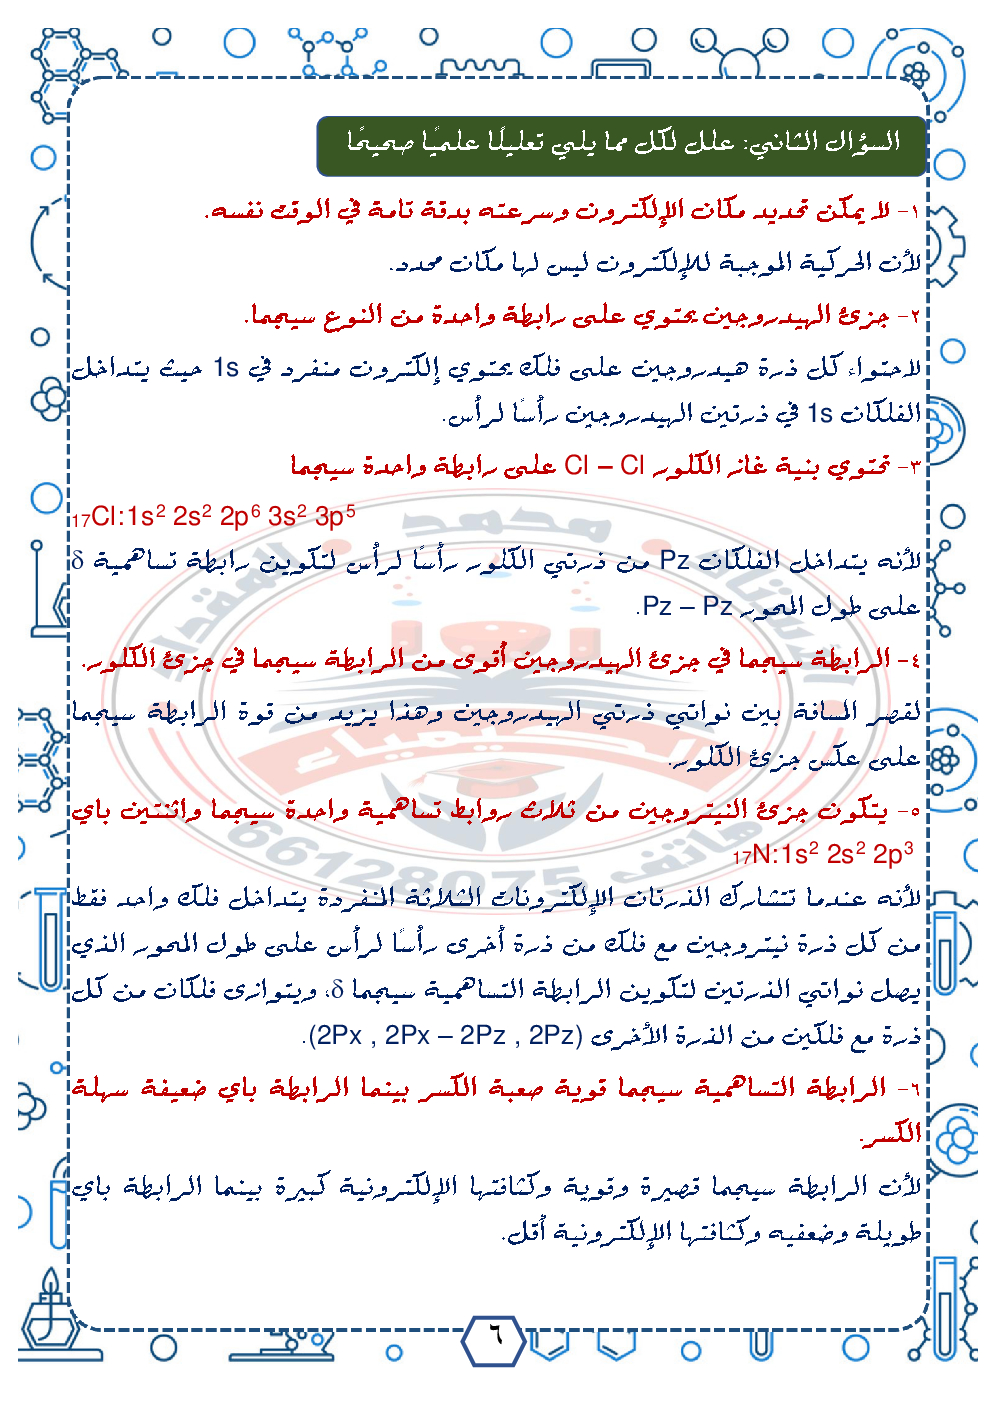 السؤال الثاني: علل لكل مما يلي تعليلًا علميًا صحيحًا
١- لا يمكن تحديد مكان الإلكترون وسرعته بدقة تامة في الوقت نفسه.
لأن الحركية الموجبة للإلكترون ليس لها مكان محدد.
٢- جزئ الهيدروجين يحتوي على رابطة واحدة من النوع سيجما.
لاحتواء كل ذرة هيدروجين على فلك يحتوي إلكترون منفرد في 1s حيث يتداخل
الفلكان 1s في ذرتين الهيدروجين رأسًا لرأس.
٣- تحتوي بنية غاز الكلور Cl – Cl على رابطة واحدة سيجما
₁₇Cl:1s² 2s² 2p⁶ 3s² 3p⁵
لأنه يتداخل الفلكان Pz من ذرتي الكلور رأسًا لرأس لتكوين رابطة تساهمية δ
على طول المحور Pz – Pz.
٤- الرابطة سيجما في جزئ الهيدروجين أقوى من الرابطة سيجما في جزئ الكلور.
لقصر المسافة بين نواتي ذرتي الهيدروجين وهذا يزيد من قوة الرابطة سيجما
على عكس جزئ الكلور.
٥- يتكون جزئ النيتروجين من ثلاث روابط تساهمية واحدة سيجما واثنتين باي
₁₇N:1s² 2s² 2p³
لأنه عندما تتشارك الذرتان الإلكترونات الثلاثة المنفردة يتداخل فلك واحد فقط
من كل ذرة نيتروجين مع فلك من ذرة أخرى رأسًا لرأس على طول المحور الذي
يصل نواتي الذرتين لتكوين الرابطة التساهمية سيجما δ، ويتوازى فلكان من كل
ذرة مع فلكين من الذرة الأخرى (2Px , 2Px – 2Pz , 2Pz).
٦- الرابطة التساهمية سيجما قوية صعبة الكسر بينما الرابطة باي ضعيفة سهلة
الكسر.
لأن الرابطة سيجما قصيرة وقوية وكثافتها الإلكترونية كبيرة بينما الرابطة باي
طويلة وضعفيه وكثافتها الإلكترونية أقل.
٦
الأستاذ محمد الفقداء
الكيمياء
هاتف 66128075